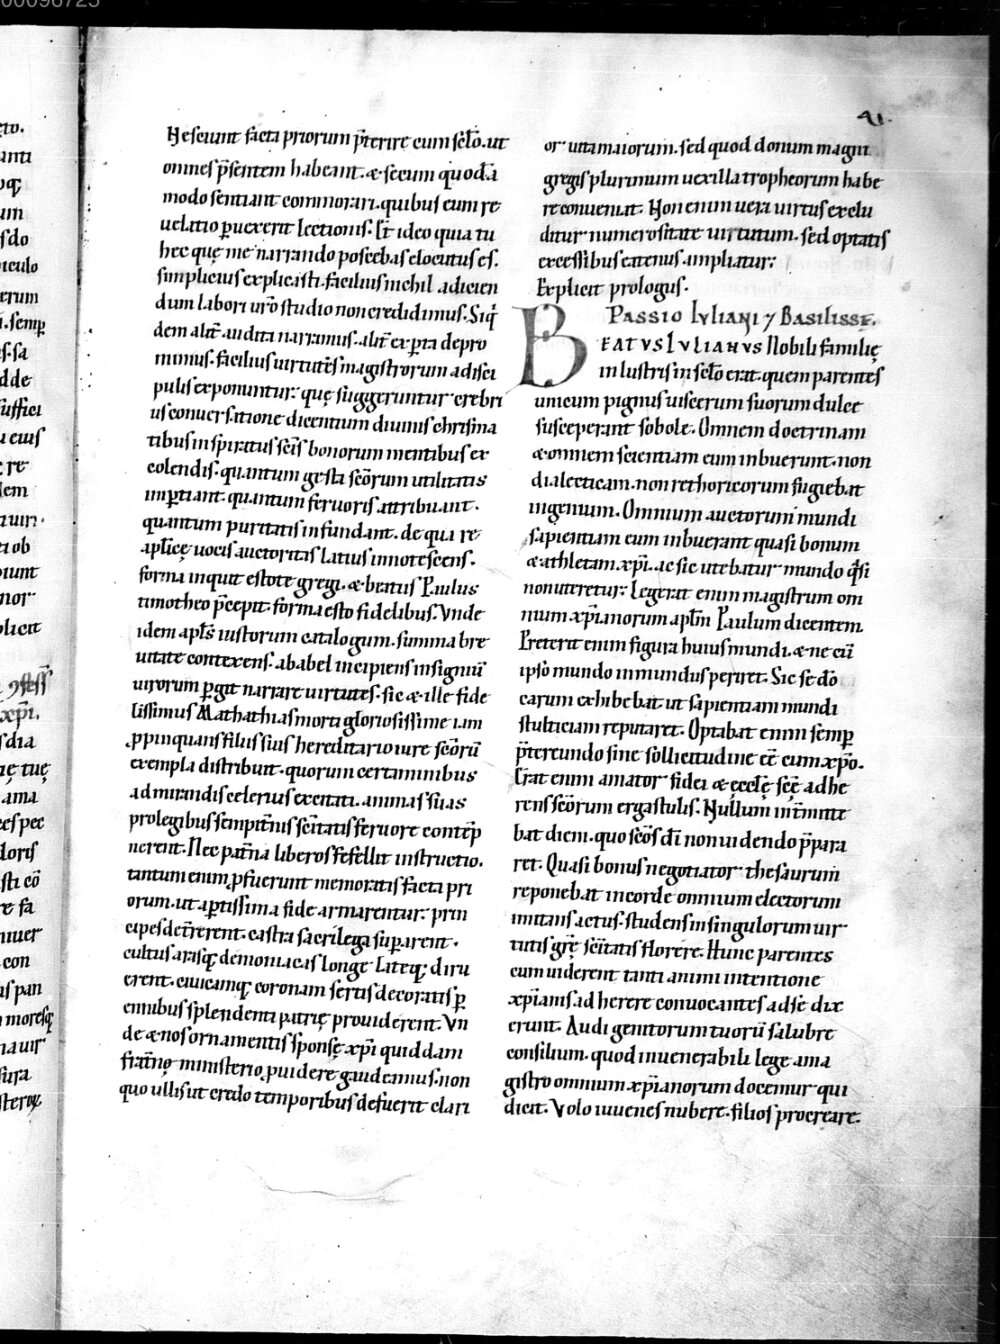 41.
Nesciunt facta priorum p̄terire cum sc̄lo. ut
omnes p̄sentem habeant. & secum quodā
modo sentiant commorari. quibus eum re
uelatio ꝑuexerit lectionis. Et ideo quia tu
hec quę me narrando poscebas elocutus es.
simplicius explicasti. facilius nichil adicien
dum labori ur̄o studio non credidimus. Siq̇
dem alit̄ audita narramus. alit̄ exꝑta depro
mimus. facilius uirtutes magistrorum a disci
pulis exponuntur. quę suggeruntur crebri
us conuersatione dicentium diuinus chrisma
tibus inspiratus sc̄is bonorum mentibus ex
colendis. quantum gesta sc̄orum utilitatis
imꝑtiant. quantum feruoris attribuant.
quantum puritatis infundant. de qua re
aplīcę uocis auctoritas latius innotescens.
forma inquit estote gregi. & beatus Paulus
timotheo p̄cepit. forma esto fidelibus. Vnde
idem apl̄s iustorum catalogum. summa bre
uitate contexens. ab abel incipiens insigniū
uirorum ꝑgit narrare uirtutes. sic & ille fide
lissimus Mathathias morti gloriosissime iam
ꝓpinquans filiis suis hereditario iure sc̄orū
exempla distribuit. quorum certaminibus
admirandis celerius excitati. animas suas
pro legibus sempit̄nis sc̄itatis feruore contēp
nerent. Nec pat̄na liberos fefellit instructio.
tantum enim ꝓfuerunt memoratis facta pri
orum. ut aꝑtissima fide armarentur. prin
cipes det̄rerent. castra sacrilega suꝑarent.
cultus arasq; demoniacas longe lateq; diru
erent. ciuicamq; coronam sertis decoratis ꝑ
ennibus splendenti patrię prouiderent. Vn
de & nos ornamentis sponsę xp̄i quiddam
frat̄no ministerio ꝓuidere gaudemus. non
quo ullis ut credo temporibus defuerit clari
or uita maiorum. sed quod donum magni
gregis plurimum uexilla tropheorum habe
re conueniat. Non enim uera uirtus exclu
ditur numerositate uirtutum. sed optatis
excessibus eatenus ampliatur.
Explicit prologus.
PASSIO IVLIANI 7 BASILISSE.
BEATVS IVLIANVS Nobili familię
in lustris in sc̄lo erat. quem parentes
unicum pignus uiscerum suorum dulce
susceperant sobole. Omnem doctrinam
& omnem scientiam eum inbuerunt. non
dialecticam. non rethoricorum fugiebat
ingenium. Omnium auctorum mundi
sapientiam eum inbuerant quasi bonum
& athletam xp̄i. ac sic utebatur mundo q̇si
non uteretur. Legerat enim magistrum om
nium xp̄ianorum aplm̄ Paulum dicentem.
Preterit enim figura huius mundi. & ne cū
ipso mundo inmundus periret. Sic se dō
carum exhibebat ut sapientiam mundi
stulticiam reputaret. Optabat enim semꝑ
p̄tereundo sine sollicitudine eē cum xp̄o.
Erat enim amator fidei & ęcclę̄ sc̄ę adhe
rens sc̄orum ergastulis. Nullum int̄mitte
bat diem. quo sc̄os dī non uidendo p̄para
ret. Quasi bonus negotiator thesaurum
reponebat in corde omnium electorum
imitans actus. studens in singulorum uir
tutis grē sc̄itatis florere. Hunc parentes
cum uiderent tanti animi intentione
xp̄ianis adherere conuocantes ad se dix
erunt. Audi genitorum tuorū salubre
consilium. quod in uenerabili lege a ma
gistro omnium xp̄ianorum docemur qui
dicit. Volo iuuenes nubere. filios procreare.